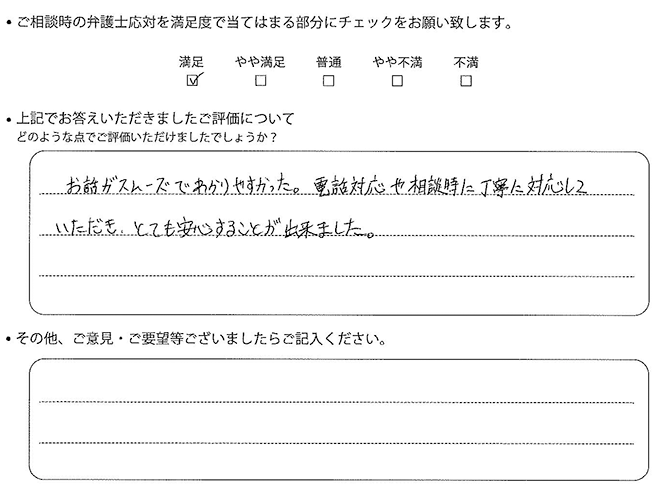 • ご相談時の弁護士応対を満足度で当てはまる部分にチェックをお願い致します。
満足 やや満足 普通 やや不満 不満
☑ ☐ ☐ ☐ ☐
• 上記でお答えいただきましたご評価について
どのような点でご評価いただけましたでしょうか？
お話がスムーズでわかりやすかった。電話対応や相談時に丁寧に対応して
いただき、とても安心することが出来ました。
• その他、ご意見・ご要望等ございましたらご記入ください。